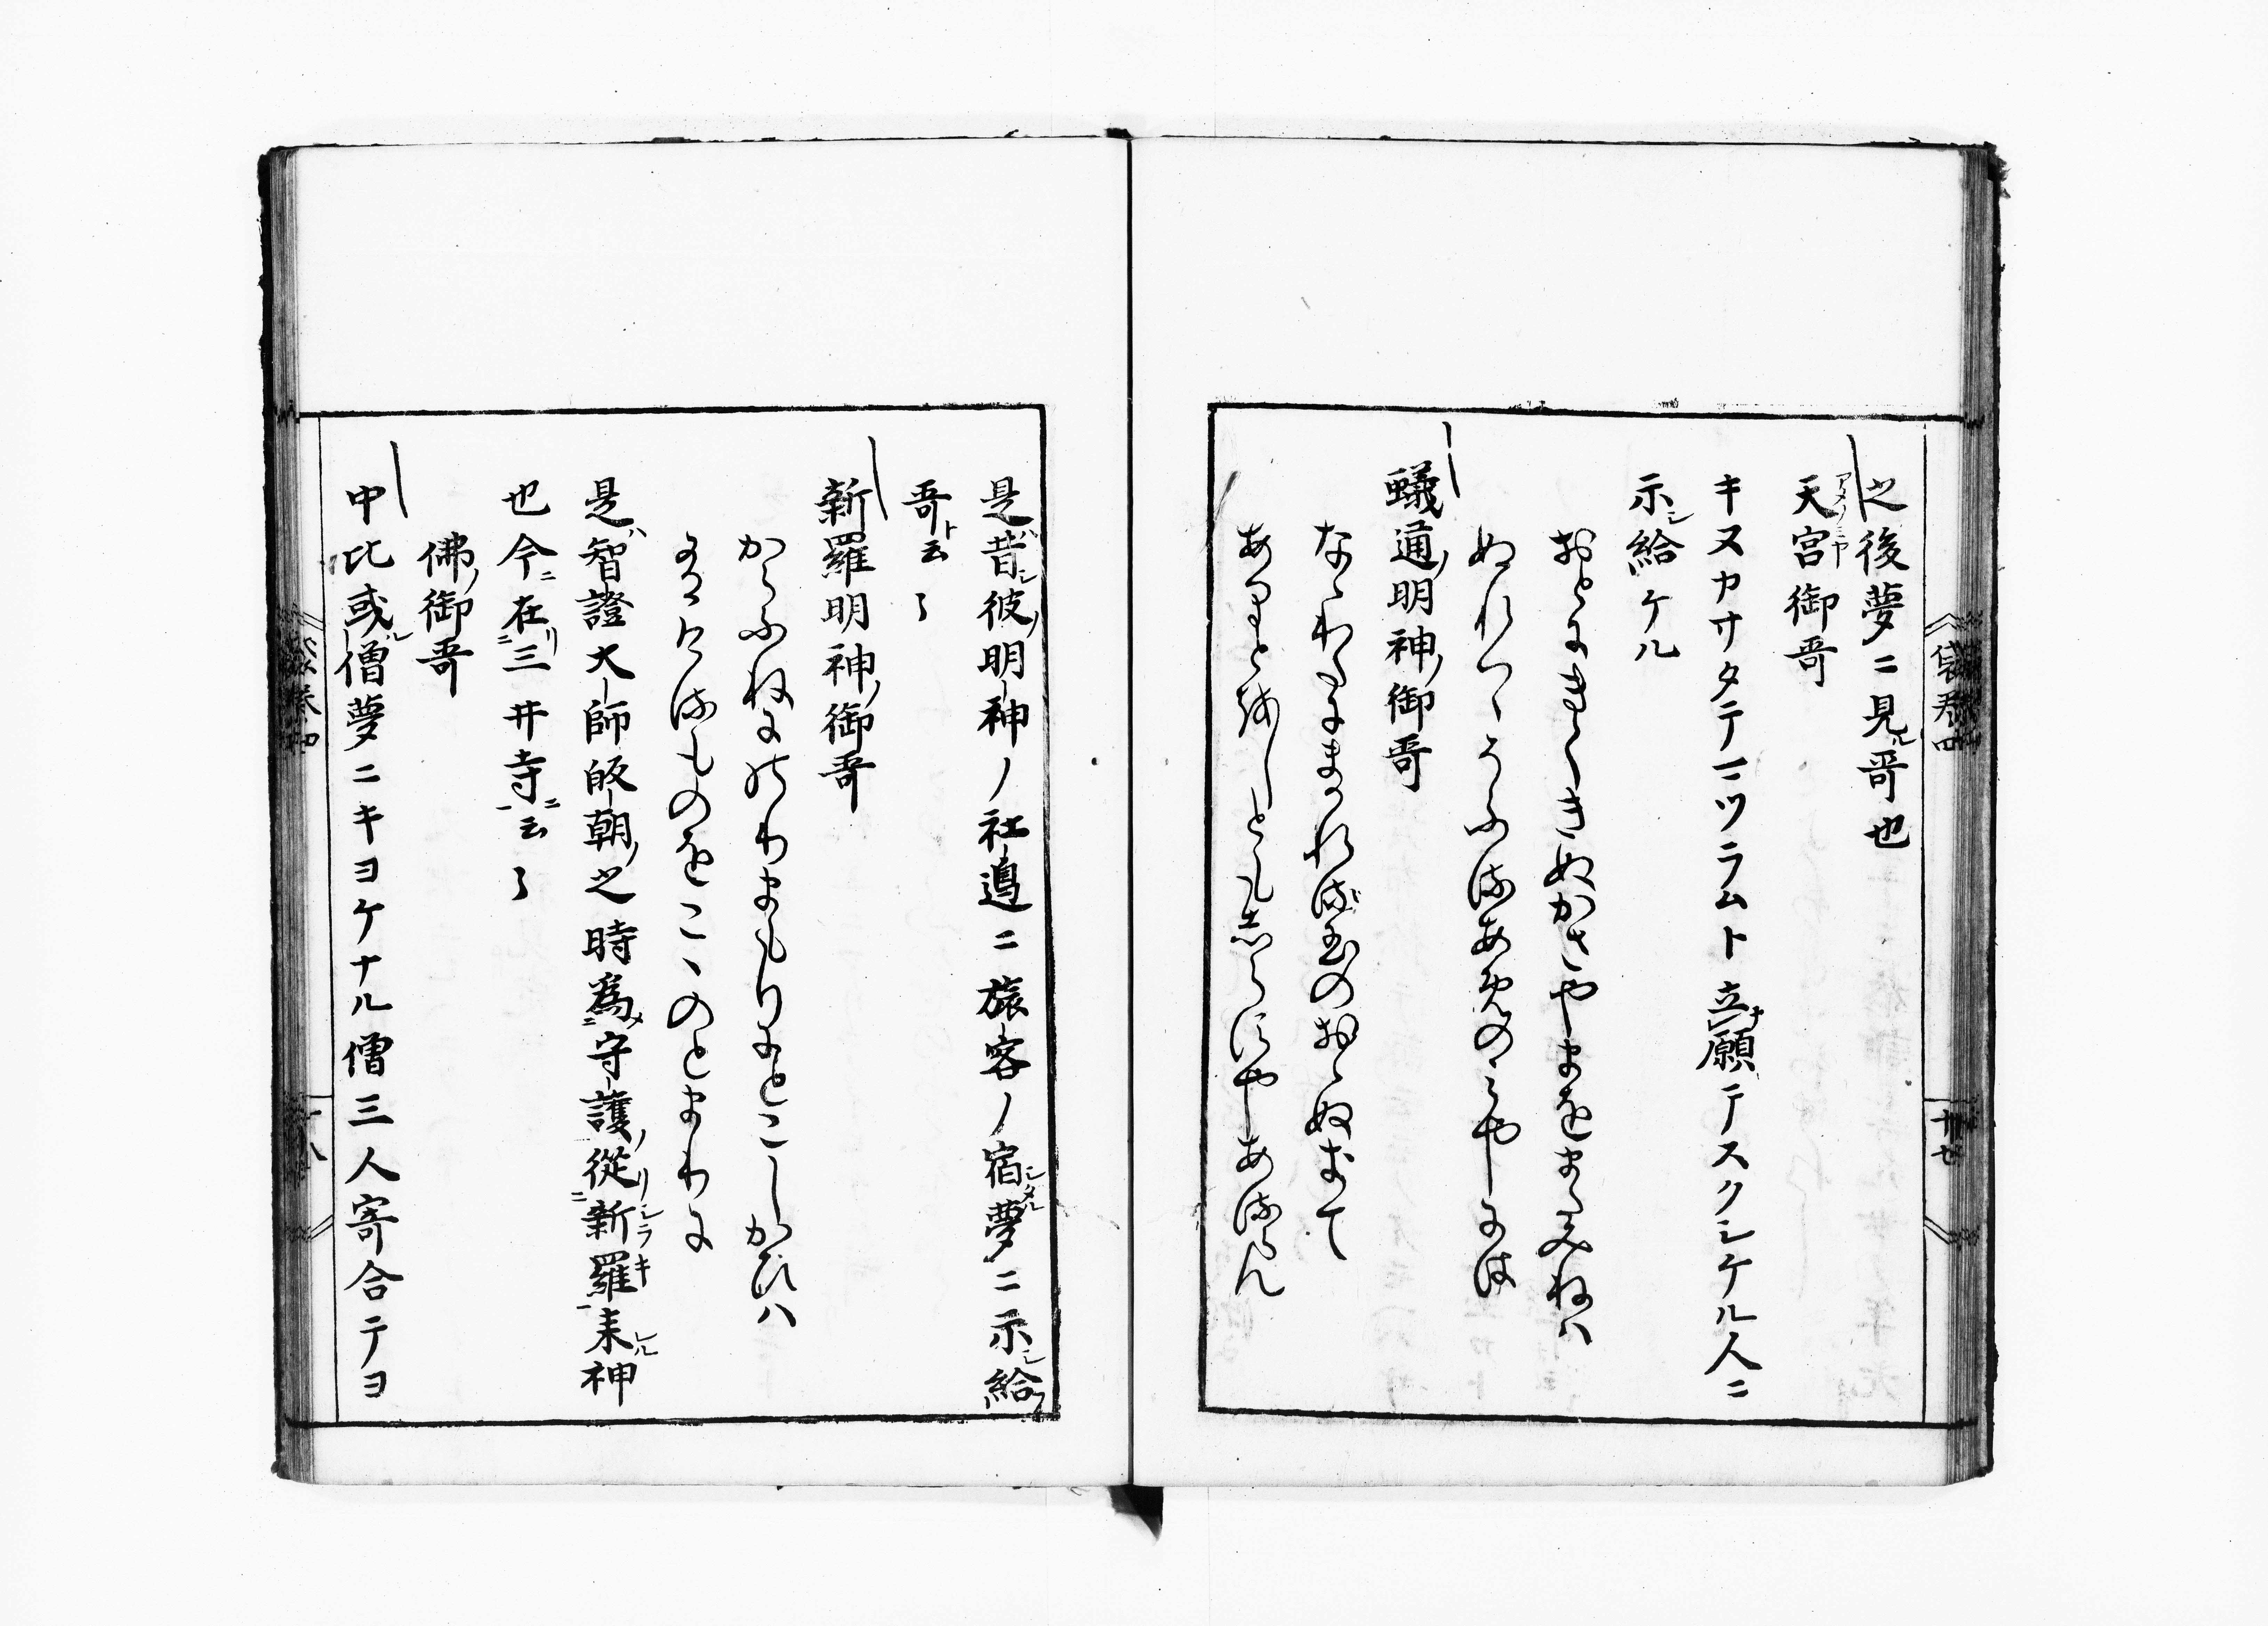 之後夢ニ見ル哥也
天宮御哥
アメノミヤ
キヌカサタテマツラムト立願テスクシケル人ニ
示シ給ケル
おとにきくきぬかさやまをまたみねハ
ぬれつゝそふるあめのみやには
蟻通ノ明神ノ御哥
なゝわたにまかれる玉のおゝぬきて
ありとをしとも志らすやあるらん
是ハ昔シ彼ノ明神ノ社邊ニ旅客ノ宿シタル夢ニ示シ給フ
哥ト云々
新羅明神ノ御哥
からふねにのりまもりにとこしかひハ
ありけるものをこゝのとまりに
是ハ智證大師皈朝ノ之時為メニ守護ノ從リ新羅シラキ来レル神
也今ニ在リ三井寺ニ云々
佛ノ御哥
中比或ル僧夢ニキヨケナル僧三人寄合テヨ